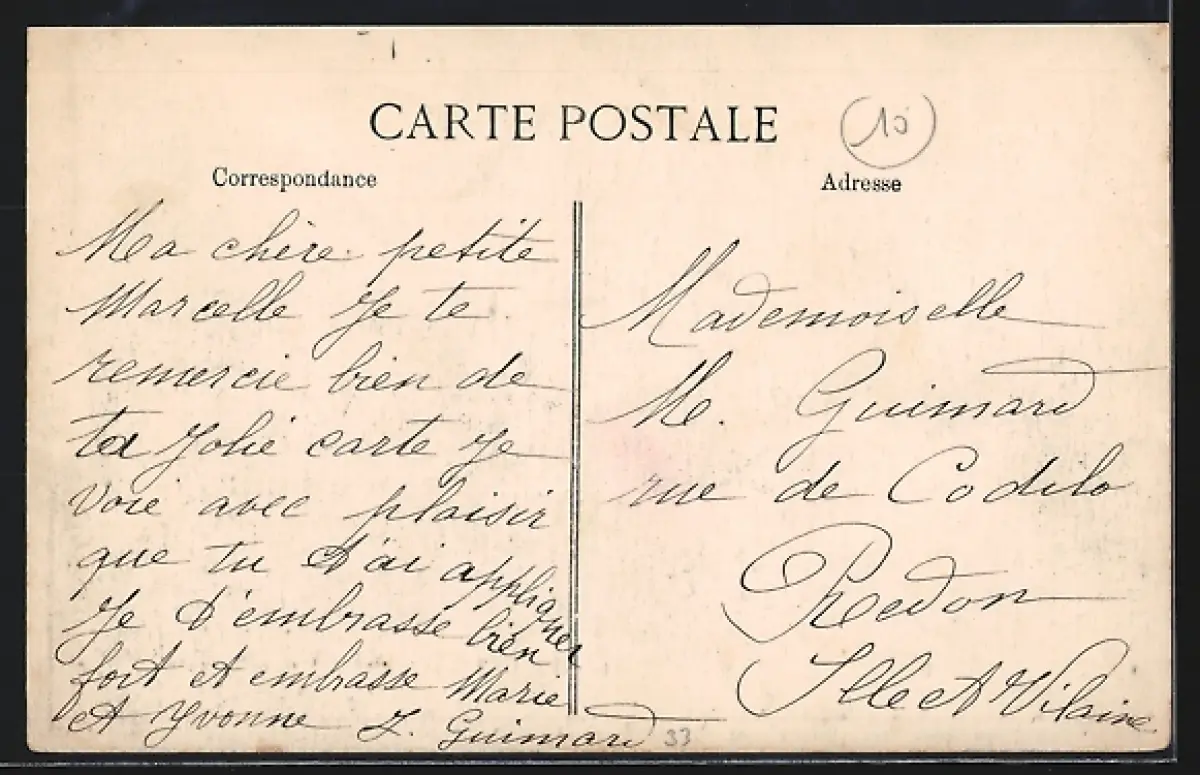 CARTE POSTALE
10
Correspondance
Adresse
Ma chère petite
Marcelle Je te
remercie bien de
ta Jolie carte Je
voie avec plaisir
que tu t'ai appliquer
Je t'embrasse bien
fort et embrasse Marie
et Yvonne J. Guimard
33
Mademoiselle
M. Guimard
rue de Codilo
Redon
Ille et Vilaine